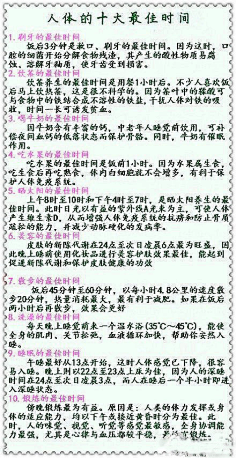 人体的十大最佳时间
1.刷牙的最佳时间
饭后3分钟是漱口、刷牙的最佳时间。因为这时，口
腔的细菌开始分解食物残渣，其产生的酸性物质易腐
蚀、溶解牙釉质，使牙齿受到损害。
2.饮茶的最佳时间
饮茶养生的最佳时间是用餐1小时后。不少人喜欢饭
后马上饮热茶，这是很不科学的。因为茶叶中的鞣酸可
与食物中的铁结合成不溶性的铁盐，干扰人体对铁的吸
收，时间一长可诱发贫血。
3.喝牛奶的最佳时间
因牛奶含有丰富的钙，中老年人睡觉前饮用，可补
偿夜间血钙的低落状态而保护骨骼。同时，牛奶有催眠
作用。
4.吃水果的最佳时间
吃水果的最佳时间是饭前1小时。因为水果属生食，
吃生食后再吃熟食，体内白细胞就不会增多，有利于保
护人体免疫系统。
5.晒太阳的最佳时间
上午8时至10时和下午4时至7时，是晒太阳养生的最
佳时间。此时日光以有益的紫外线A光束为主，可使人体产
生维生素D，从而增强人体免疫系统的抗痨和防止骨质
疏松的能力，并减少动脉硬化的发病率。
6.美容的最佳时间
皮肤的新陈代谢在24点至次日凌晨6点最为旺盛，因
此晚上睡前使用化妆品进行美容护肤效果最佳，能起到
促进新陈代谢和保护皮肤健康的功效
7.散步的最佳时间
饭后45分钟至60分钟，以每小时4.8公里的速度散
步20分钟，热量消耗最大，最有利于减肥。如果在饭后
两小时后再散步，效果会更好
8.洗澡的最佳时间
每天晚上睡觉前来一个温水浴(35℃～45℃)，能使
全身的肌肉、关节松弛，血液循环加快，帮助你安然入
睡。
9.睡眠的最佳时间
午睡最好从13点开始，这时人体感觉已下降，很容
易入睡。晚上则以22点至23点上床为佳，因为人的深睡
时间在24点至次日凌晨3点，而人在睡后一个半小时即进
入深睡状态。
10.锻炼的最佳时间
傍晚锻炼最为有益。原因是：人类的体力发挥或身
体的适应能力，均以下午或接近黄昏时分为最佳。此
时，人的味觉、视觉、听觉等感觉最敏感，全身协调能
力最强，尤其是心律与血压都较平稳，最适宜锻炼。